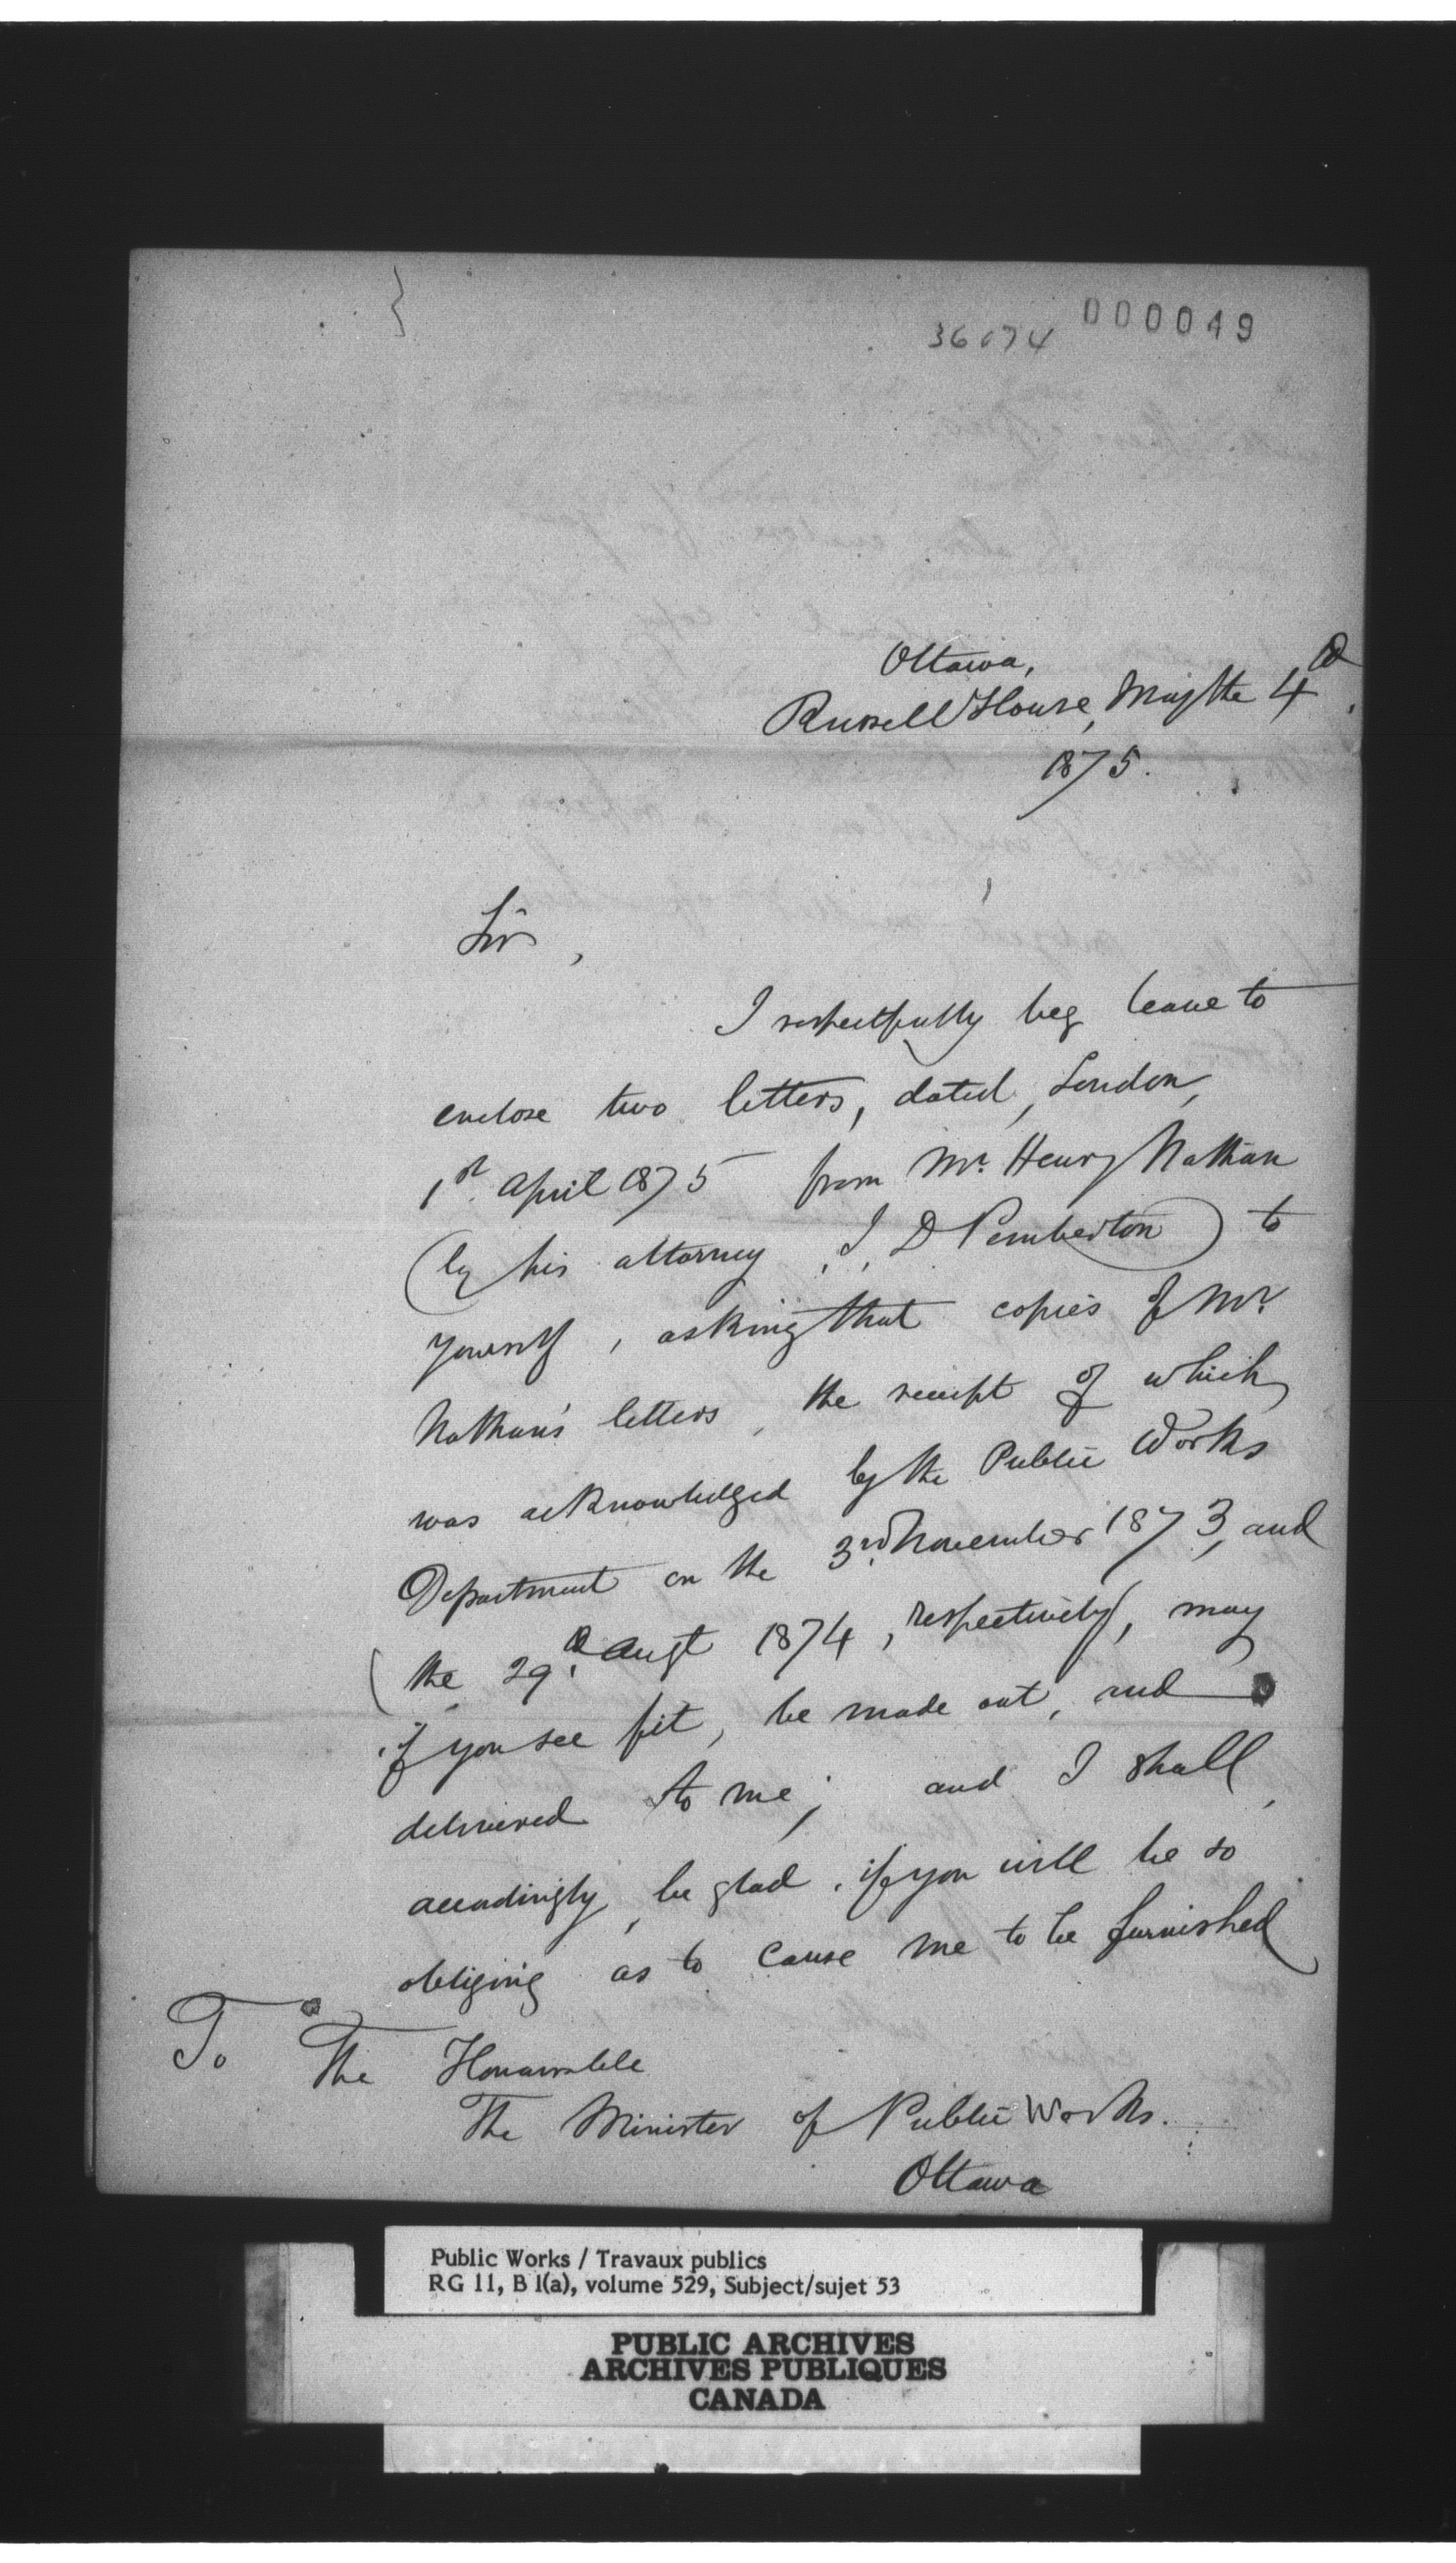 36074 000049
Ottawa,
Russell House, May the 4th.
1875.
Sir,
I respectfully beg leave to
enclose two letters, dated, London,
1st. April 1875 from Mr. Henry Nathan
(by his attorney, J. D Pemberton) to
yourself, asking that copies of Mr.
Nathan's letters, the receipt of which
was acknowledged by the Public Works
Department on the 3rd. November 1873, and
(the 29th. Augt 1874, respectively, may
if you see fit, be made out, and
delivered to me; and I shall,
accordingly, be glad, if you will be so
obliging as to cause me to be furnished
To The Honourable
The Minister of Public Works.
Ottawa
Public Works / Travaux publics
RG 11, B 1(a), volume 529, Subject/sujet 53
PUBLIC ARCHIVES
ARCHIVES PUBLIQUES
CANADA